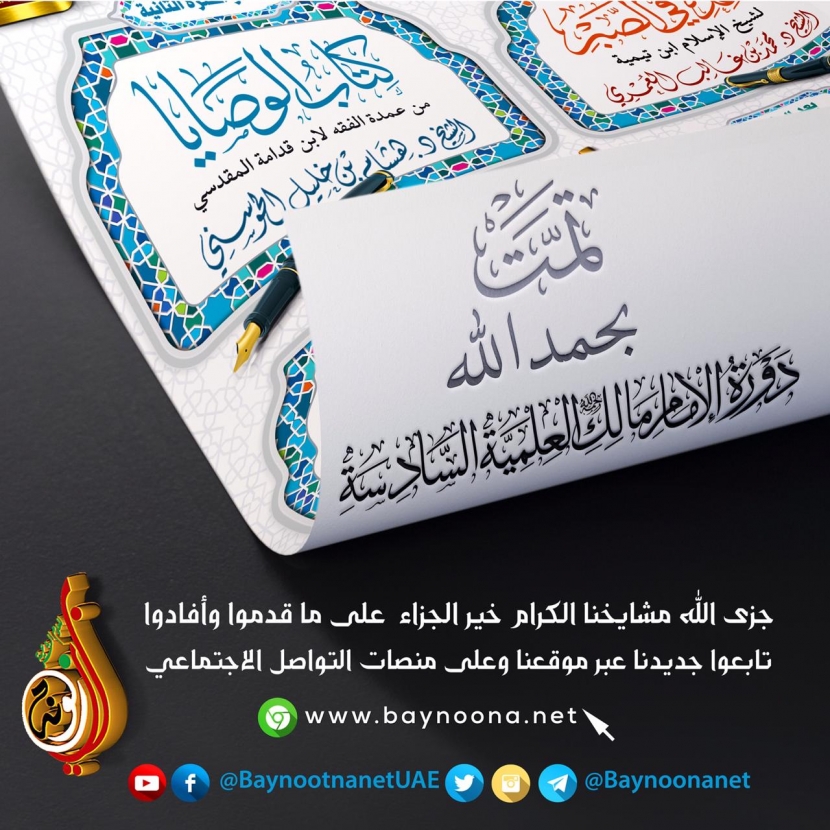 الثانية
في الصبر
لشيخ الإسلام ابن تيمية
كتاب الوصايا
من عمدة الفقه لابن قدامة المقدسي
الشيخ د. هشام بن خليل الحوسني
تمت
بحمد الله
دورة الإمام مالك العلمية السادسة
جزى الله مشايخنا الكرام خير الجزاء على ما قدموا وأفادوا
تابعوا جديدنا عبر موقعنا وعلى منصات التواصل الاجتماعي
www.baynoona.net
@BaynootnanetUAE @Baynoonanet